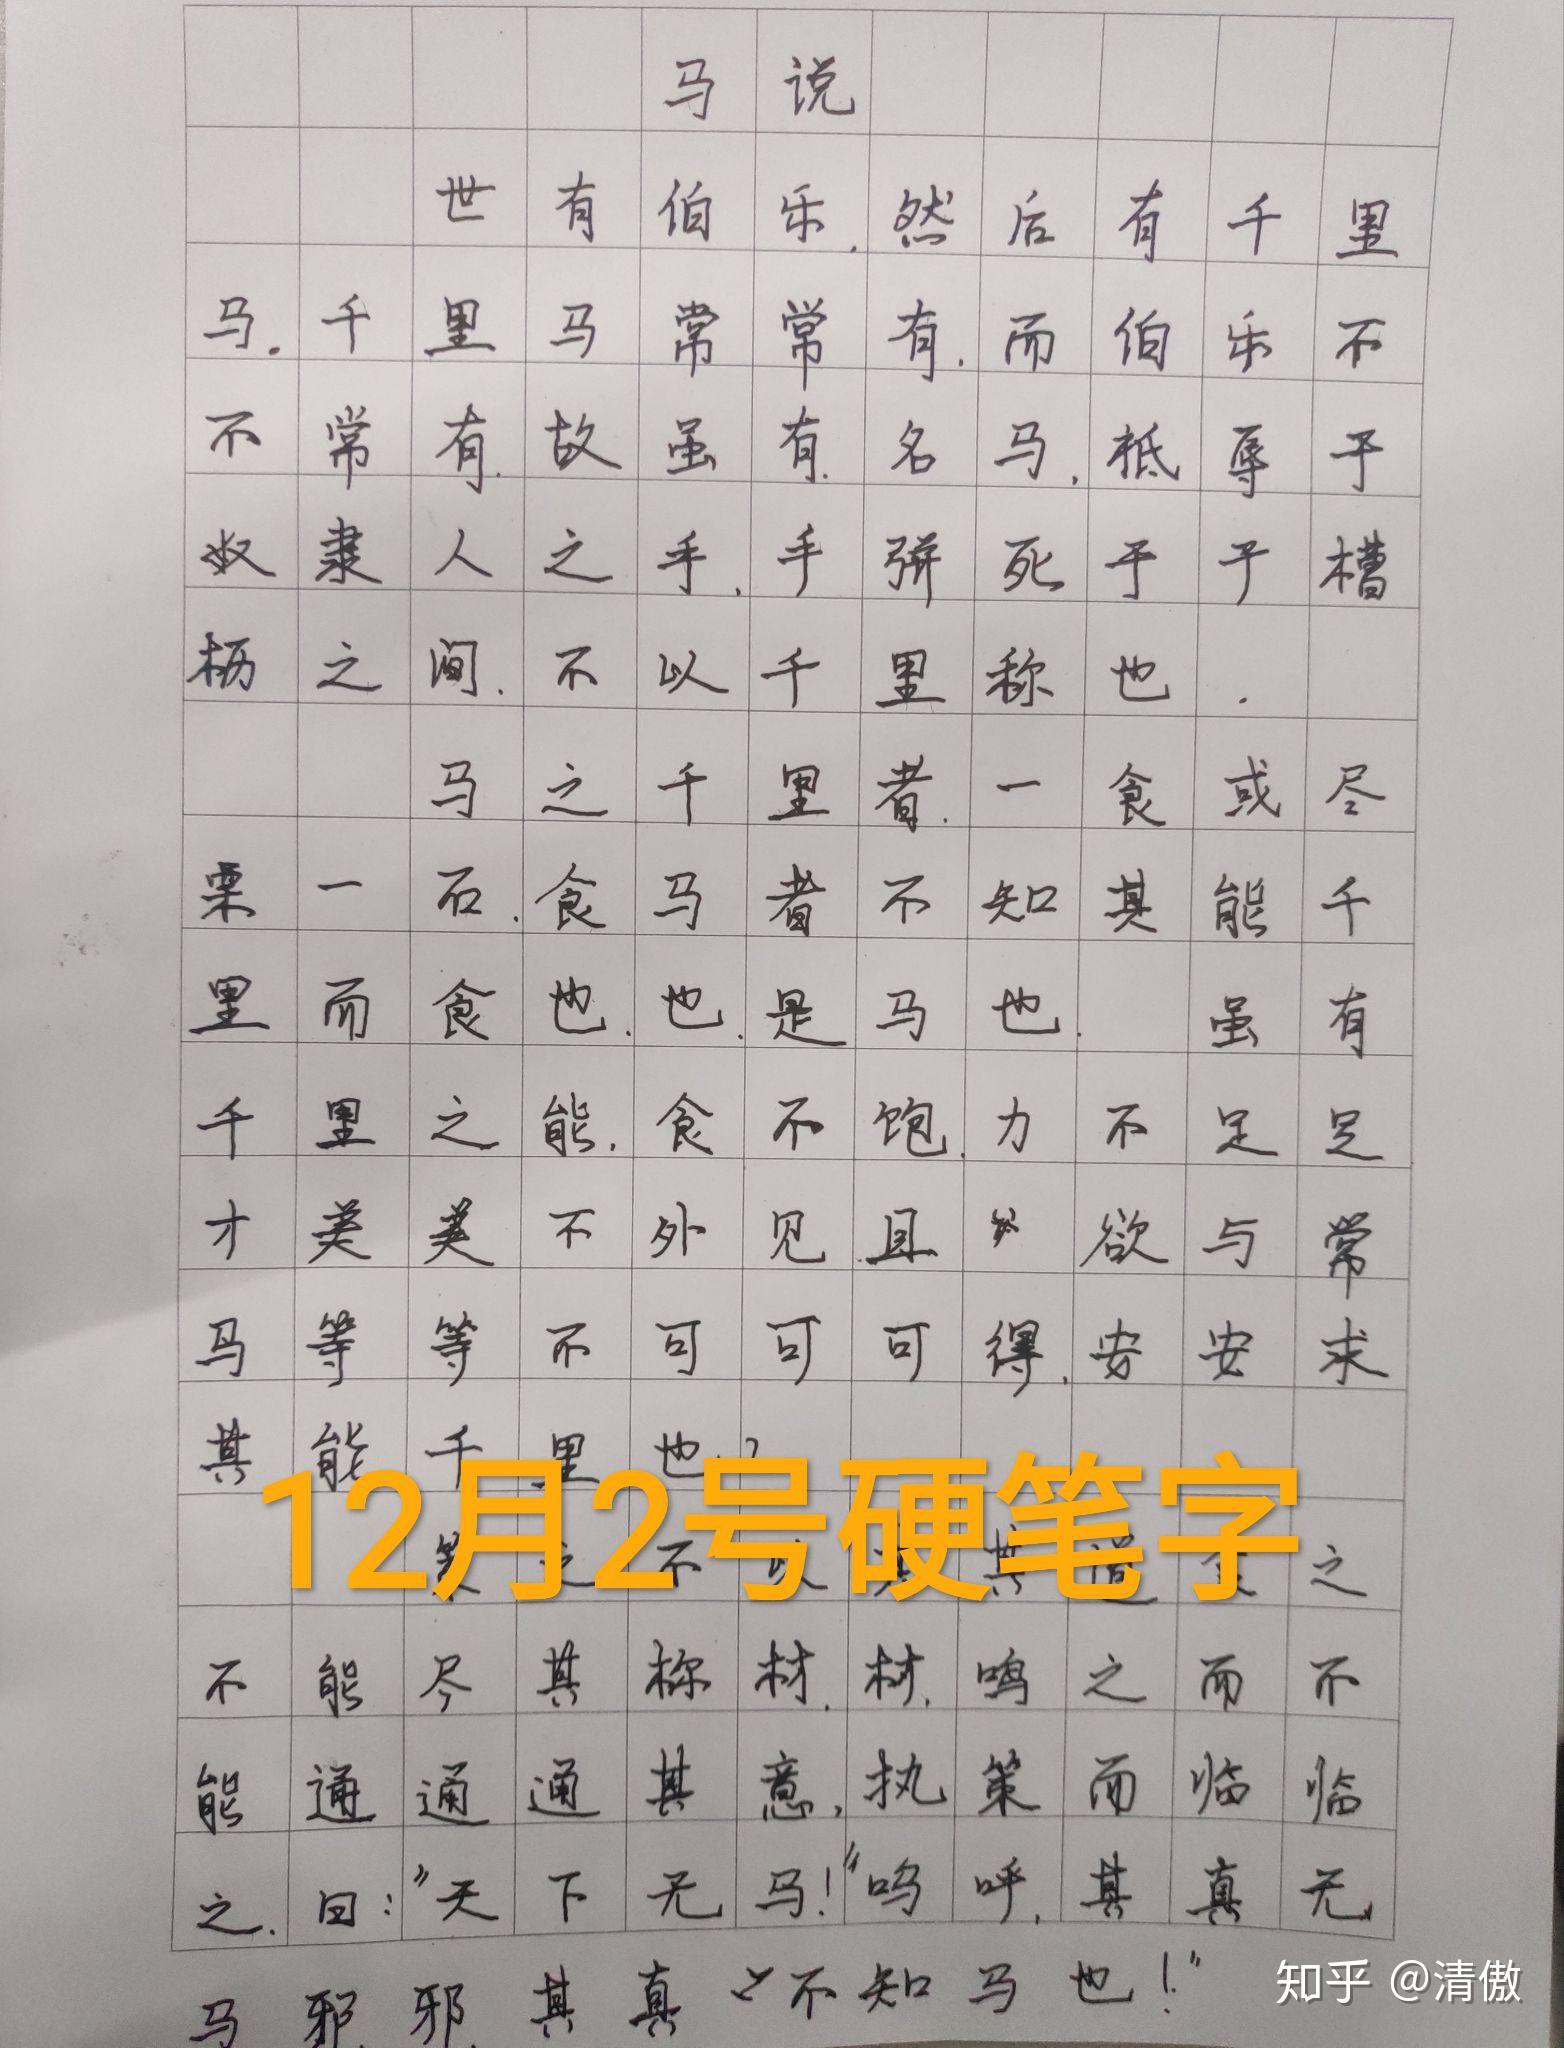 马说
世有伯乐.然后有千里
马.千里马常常有.而伯乐不
不常有.故虽有.名马.祗辱于
奴隶人之手.手骈死于于槽
枥之间.不以千里称也.
马之千里者.一食或尽
粟一石.食马者不知其能千
里而食也.也.是马也.虽有
千里之能.食不饱.力不足足
才美美不外见且欲与常
马等等不可可可得.安安求
其能千里也.?
12月2号硬笔字
策之不以其道食之
不能尽其称材.材.鸣之而不
能通通通其意,执策而临临
之.曰:"天下无马!"呜呼.其真无
马邪.邪.其真不知马也!"
知乎 @清傲